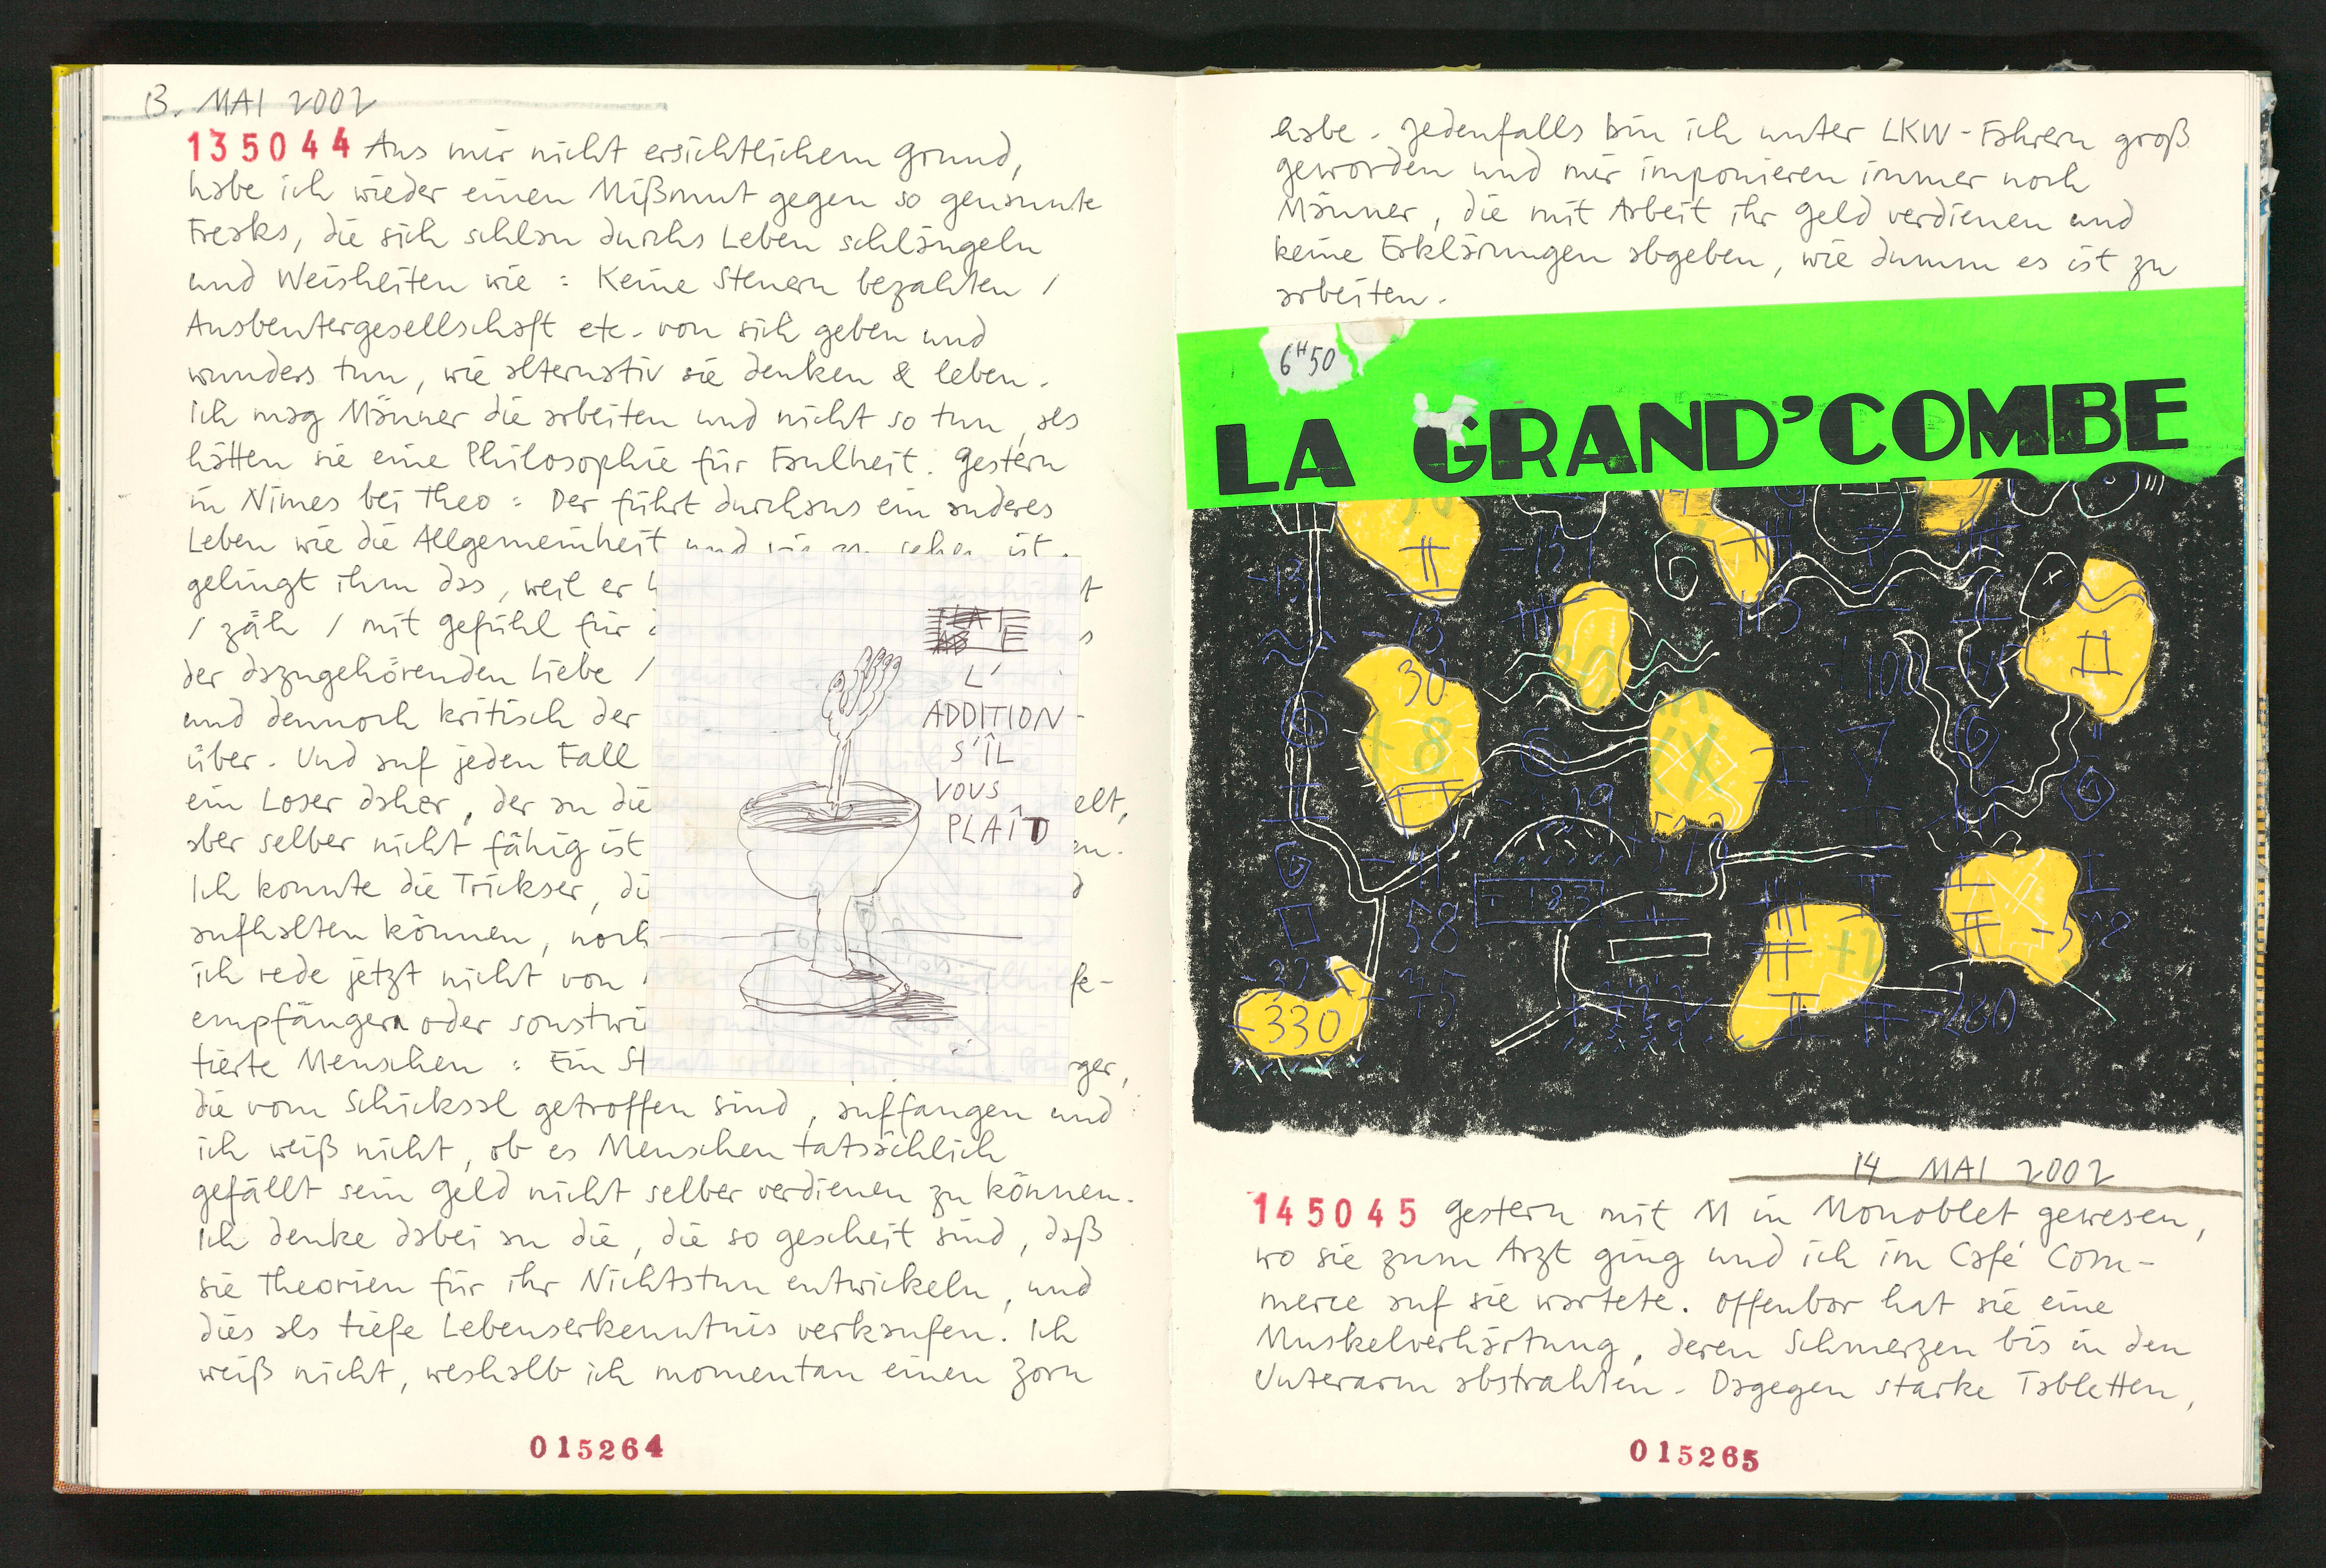 13. MAI 2002
135044 Aus mir nicht ersichtlichem Grund,
habe ich wieder einen Mißmut gegen so genannte
Freaks, die sich schlau durchs Leben schlängeln
und Weisheiten wie : Keine Steuern bezahlen /
Ausbeutergesellschaft etc. von sich geben und
wunders tun, wie alternativ sie denken & leben.
Ich mag Männer die arbeiten und nicht so tun, als
hätten sie eine Philosophie für Faulheit. Gestern
in Nimes bei Theo : Der führt durchaus ein anderes
Leben wie die Allgemeinheit und wie zu sehen ist,
gelingt ihm das, weil er
/ zäh / mit Gefühl für
der dazugehörenden Liebe /
und dennoch kritisch der
über. Und auf jeden Fall
ein Loser daher, der an die elt,
aber selber nicht fähig ist en.
Ich konnte die Trickser, di
aufhalten können, noch
ich rede jetzt nicht von fe-
empfängern oder sonstwi
tierte Menschen : Ein St rger,
die vom Schicksal getroffen sind, auffangen und
ich weiß nicht, ob es Menschen tatsächlich
gefällt sein Geld nicht selber verdienen zu können.
Ich denke dabei an die, die so gescheit sind, daß
sie Theorien für ihr Nichtstun entwickeln, und
dies als tiefe Lebenserkenntnis verkaufen. Ich
weiß nicht, weshalb ich momentan einen Zorn
L'
ADDITION
S'ÎL
VOUS
PLAÎT
015264
habe. Jedenfalls bin ich unter LKW-Fahrern groß
geworden und mir imponieren immer noch
Männer, die mit Arbeit ihr Geld verdienen und
keine Erklärungen abgeben, wie dumm es ist zu
arbeiten.
6H50
LA GRAND'COMBE
-13
30
+8
XX
-100
183
58
-330
-280
14 MAI 2002
145045 Gestern mit M in Monoblet gewesen,
wo sie zum Arzt ging und ich im Café Com-
merce auf sie wartete. Offenbar hat sie eine
Muskelverhärtung, deren Schmerzen bis in den
Unterarm abstrahlen. Dagegen starke Tabletten,
015265